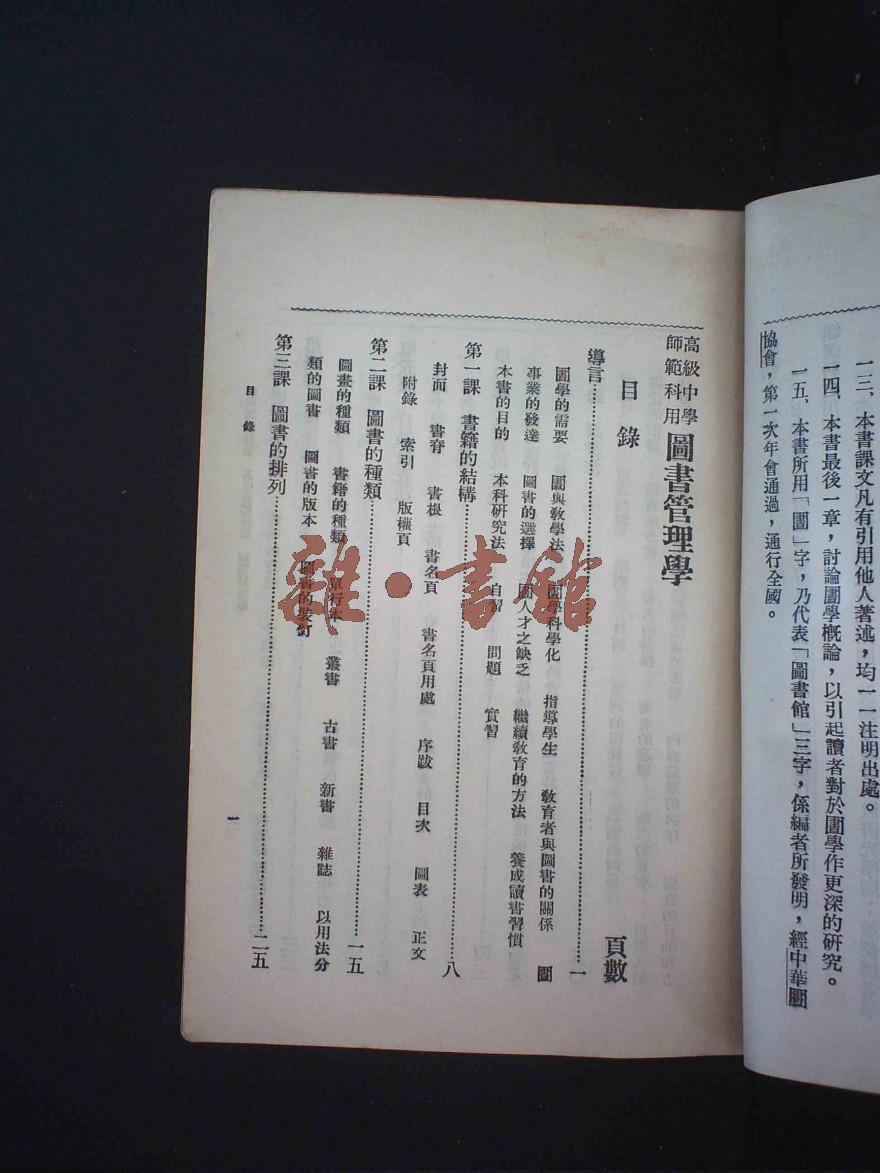 一三、本書課文凡有引用他人著述，均一一注明出處。
一四、本書最後一章，討論圕學概論，以引起讀者對於圕學作更深的研究。
一五、本書所用「圕」字，乃代表「圖書館」三字，係編者所發明，經中華圕
協會，第一次年會通過，通行全國。
高級中學
師範科用
圖書管理學
目錄 頁數
導言……一
圕學的需要 圕與教學法 圕學科學化 指導學生 教育者與圖書的關係 圕
事業的發達 圖書的選擇 圕人才之缺乏 繼續教育的方法 養成讀書習慣
本書的目的 本科研究法 自習 問題 實習
第一課 書籍的結構……八
封面 書脊 書根 書名頁 書名頁用處 序跋 目次 圖表 正文
附錄 索引 版權頁
第二課 圖書的種類……一五
圖畫的種類 書籍的種類 單行本 叢書 古書 新書 雜誌 以用法分
類的圖書 圖書的版本 圖書的裝釘
第三課 圖書的排列……二五
目錄
一
雜·書館